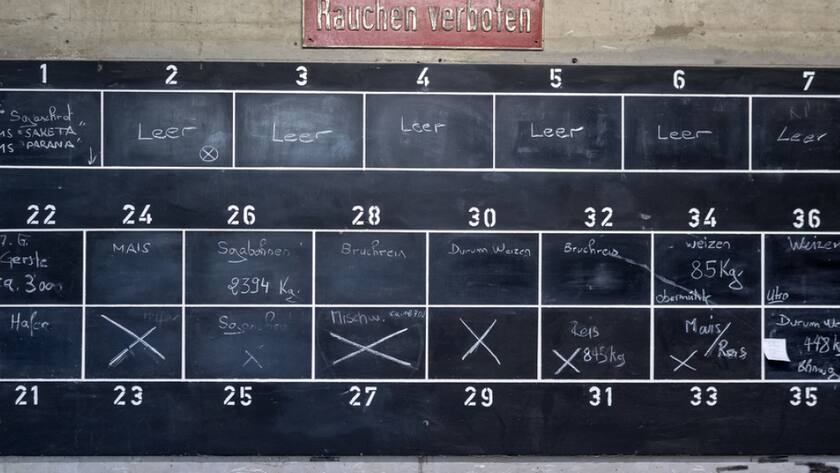 Rauchen verboten
1 2 3 4 5 6 7
Sojaschrot
MS "SAKETA"
MS "PARANA"
Leer
Leer
Leer
Leer
Leer
Leer
22 24 26 28 30 32 34 36
7. G.
Gerste
ca. 300
MAIS
Sojabohnen
2394 Kg.
Bruchreis
Durum Weizen
Bruchreis
weizen
85Kg
obermühle
Weizen
Hafer
Mischw.
Reis
845kg
Mais/
Reis
Durum
448k
21 23 25 27 29 31 33 35